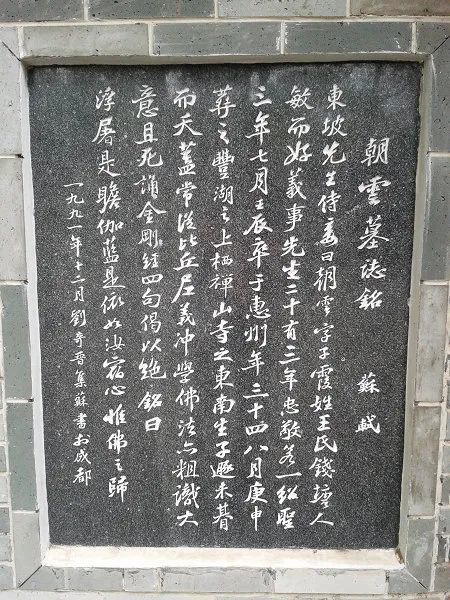 朝雲墓誌銘 蘇軾
東坡先生侍妾曰朝雲字子霞姓王氏錢塘人
敏而好義事先生二十有三年忠敬若一紹聖
三年七月壬辰卒于惠州年三十四八月庚申
葬之豐湖之上栖禪山寺之東南生子遯未朞
而夭蓋常從比丘尼義沖學佛法亦粗識大
意且死誦金剛經四句偈以絕銘曰
浮屠是瞻伽藍是依如汝宿心惟佛之歸
一九九一年十二月劉奇晉集蘇書於成都